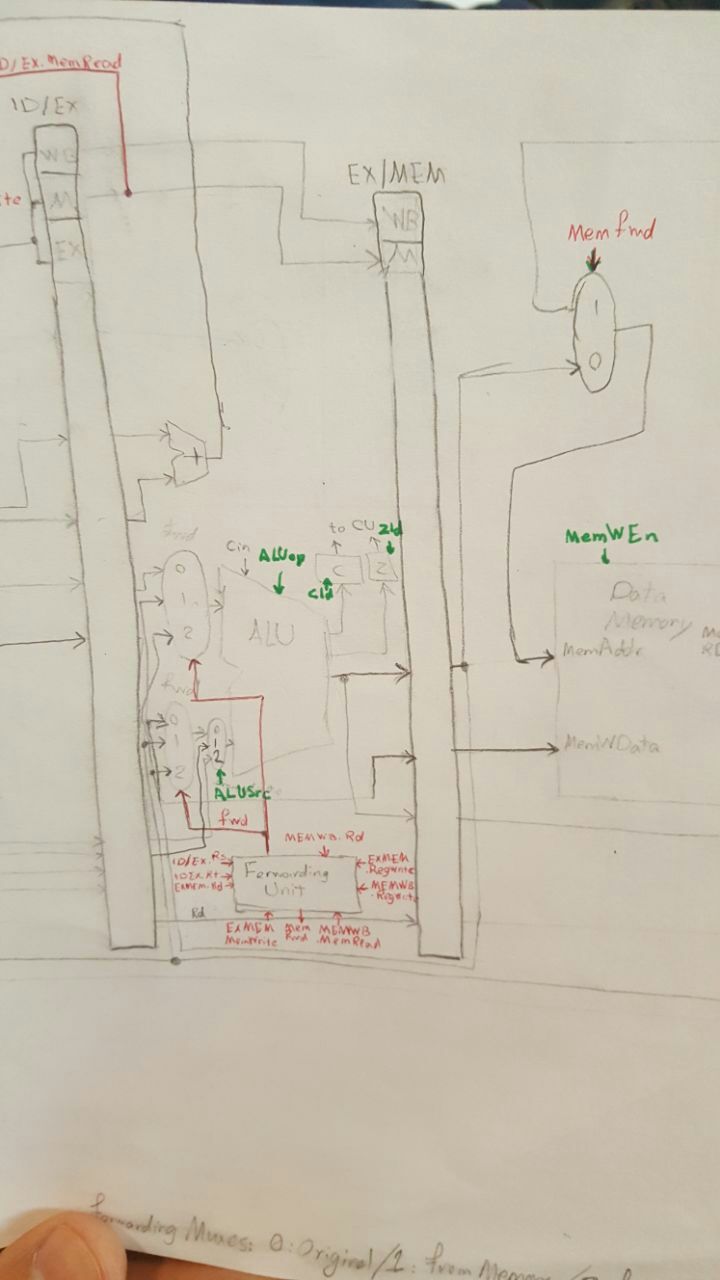 D/Ex.MemRead
ID/Ex
WB
M
EX
te
EX/MEM
WB
M
Memfwd
1
0
+
fwd
0
1
2
Cin
ALUop
ALU
to CU
Zld
C
Z
Cld
MemWEn
Data
Memory
MemAddr
MemWData
fwd
0
1
2
0
1
2
ALUSrc
fwd
MEMWB.Rd
ID/Ex.Rs
IDEx.Rt
ExMem.Rd
Forwarding
Unit
EXMEM
.Regwrite
MEMWB
.Regwrite
Rd
EXMEM
MemWrite
Mem
fwd
MEMWB
.MemRead
Forwarding Muxes: 0:Original/1: from Memory